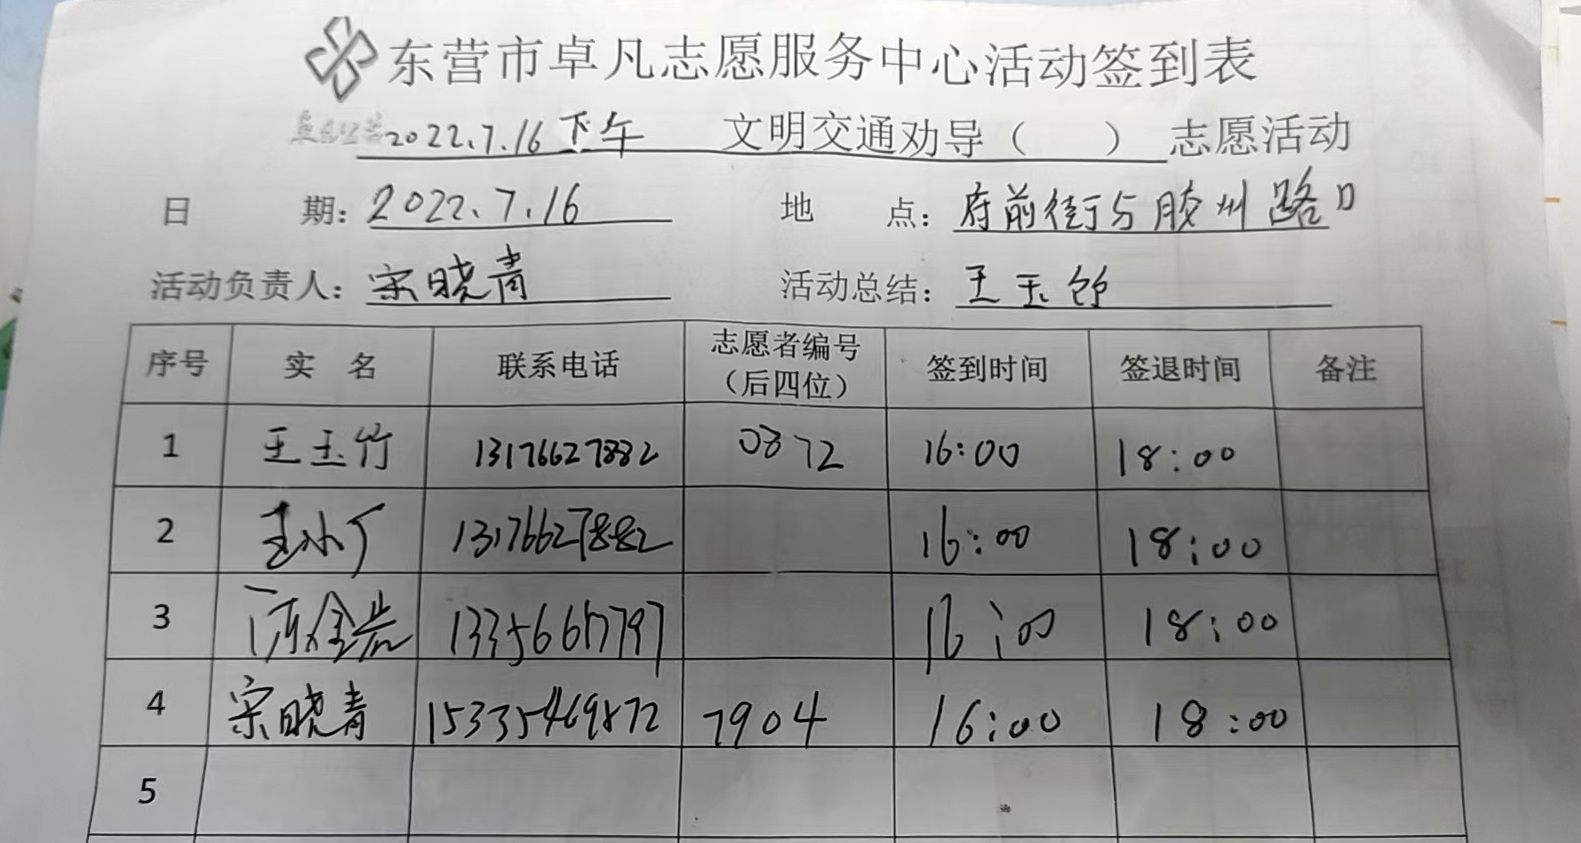 东营市卓凡志愿服务中心活动签到表
卓凡公益 2022.7.16 下午 文明交通劝导（ ） 志愿活动
日 期：2022.7.16 地 点：府前街与胶州路口
活动负责人：宋晓青 活动总结：王玉竹
序号 实 名 联系电话 志愿者编号（后四位） 签到时间 签退时间 备注
1 王玉竹 13176627882 0872 16:00 18:00
2 13176627882 16:00 18:00
3 16:00 18:00
4 宋晓青 15335469872 7904 16:00 18:00
5